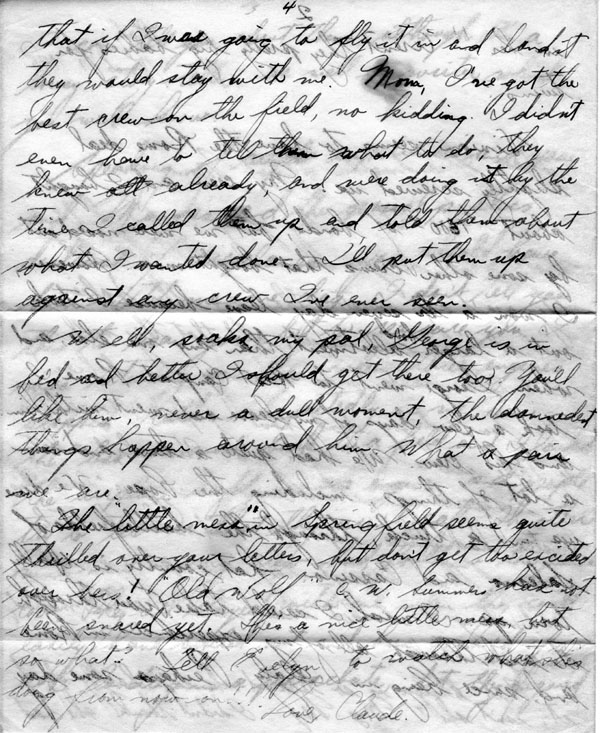 4
that if I was going to fly it in and land it
they would stay with me. Mom, I've got the
best crew on the field, no kidding. I didn't
even have to tell them what to do, they
knew all already, and were doing it by the
time I called them up and told them about
what I wanted done. I'll put them up
against any crew I've ever seen.
Well, my pal, George is in
bed and better I should get there too. You'll
like him, never a dull moment, the damnedest
things happen around him. What a pair
we are.
The "little mess" in Springfield seems quite
thrilled over your letters, but don't get too excited
over hers! "Old Wolf" C. W. Summers has not
been snared yet. She's a nice little mess, but
so what? Tell Evelyn to watch what she
does from now on... Love, Claude.